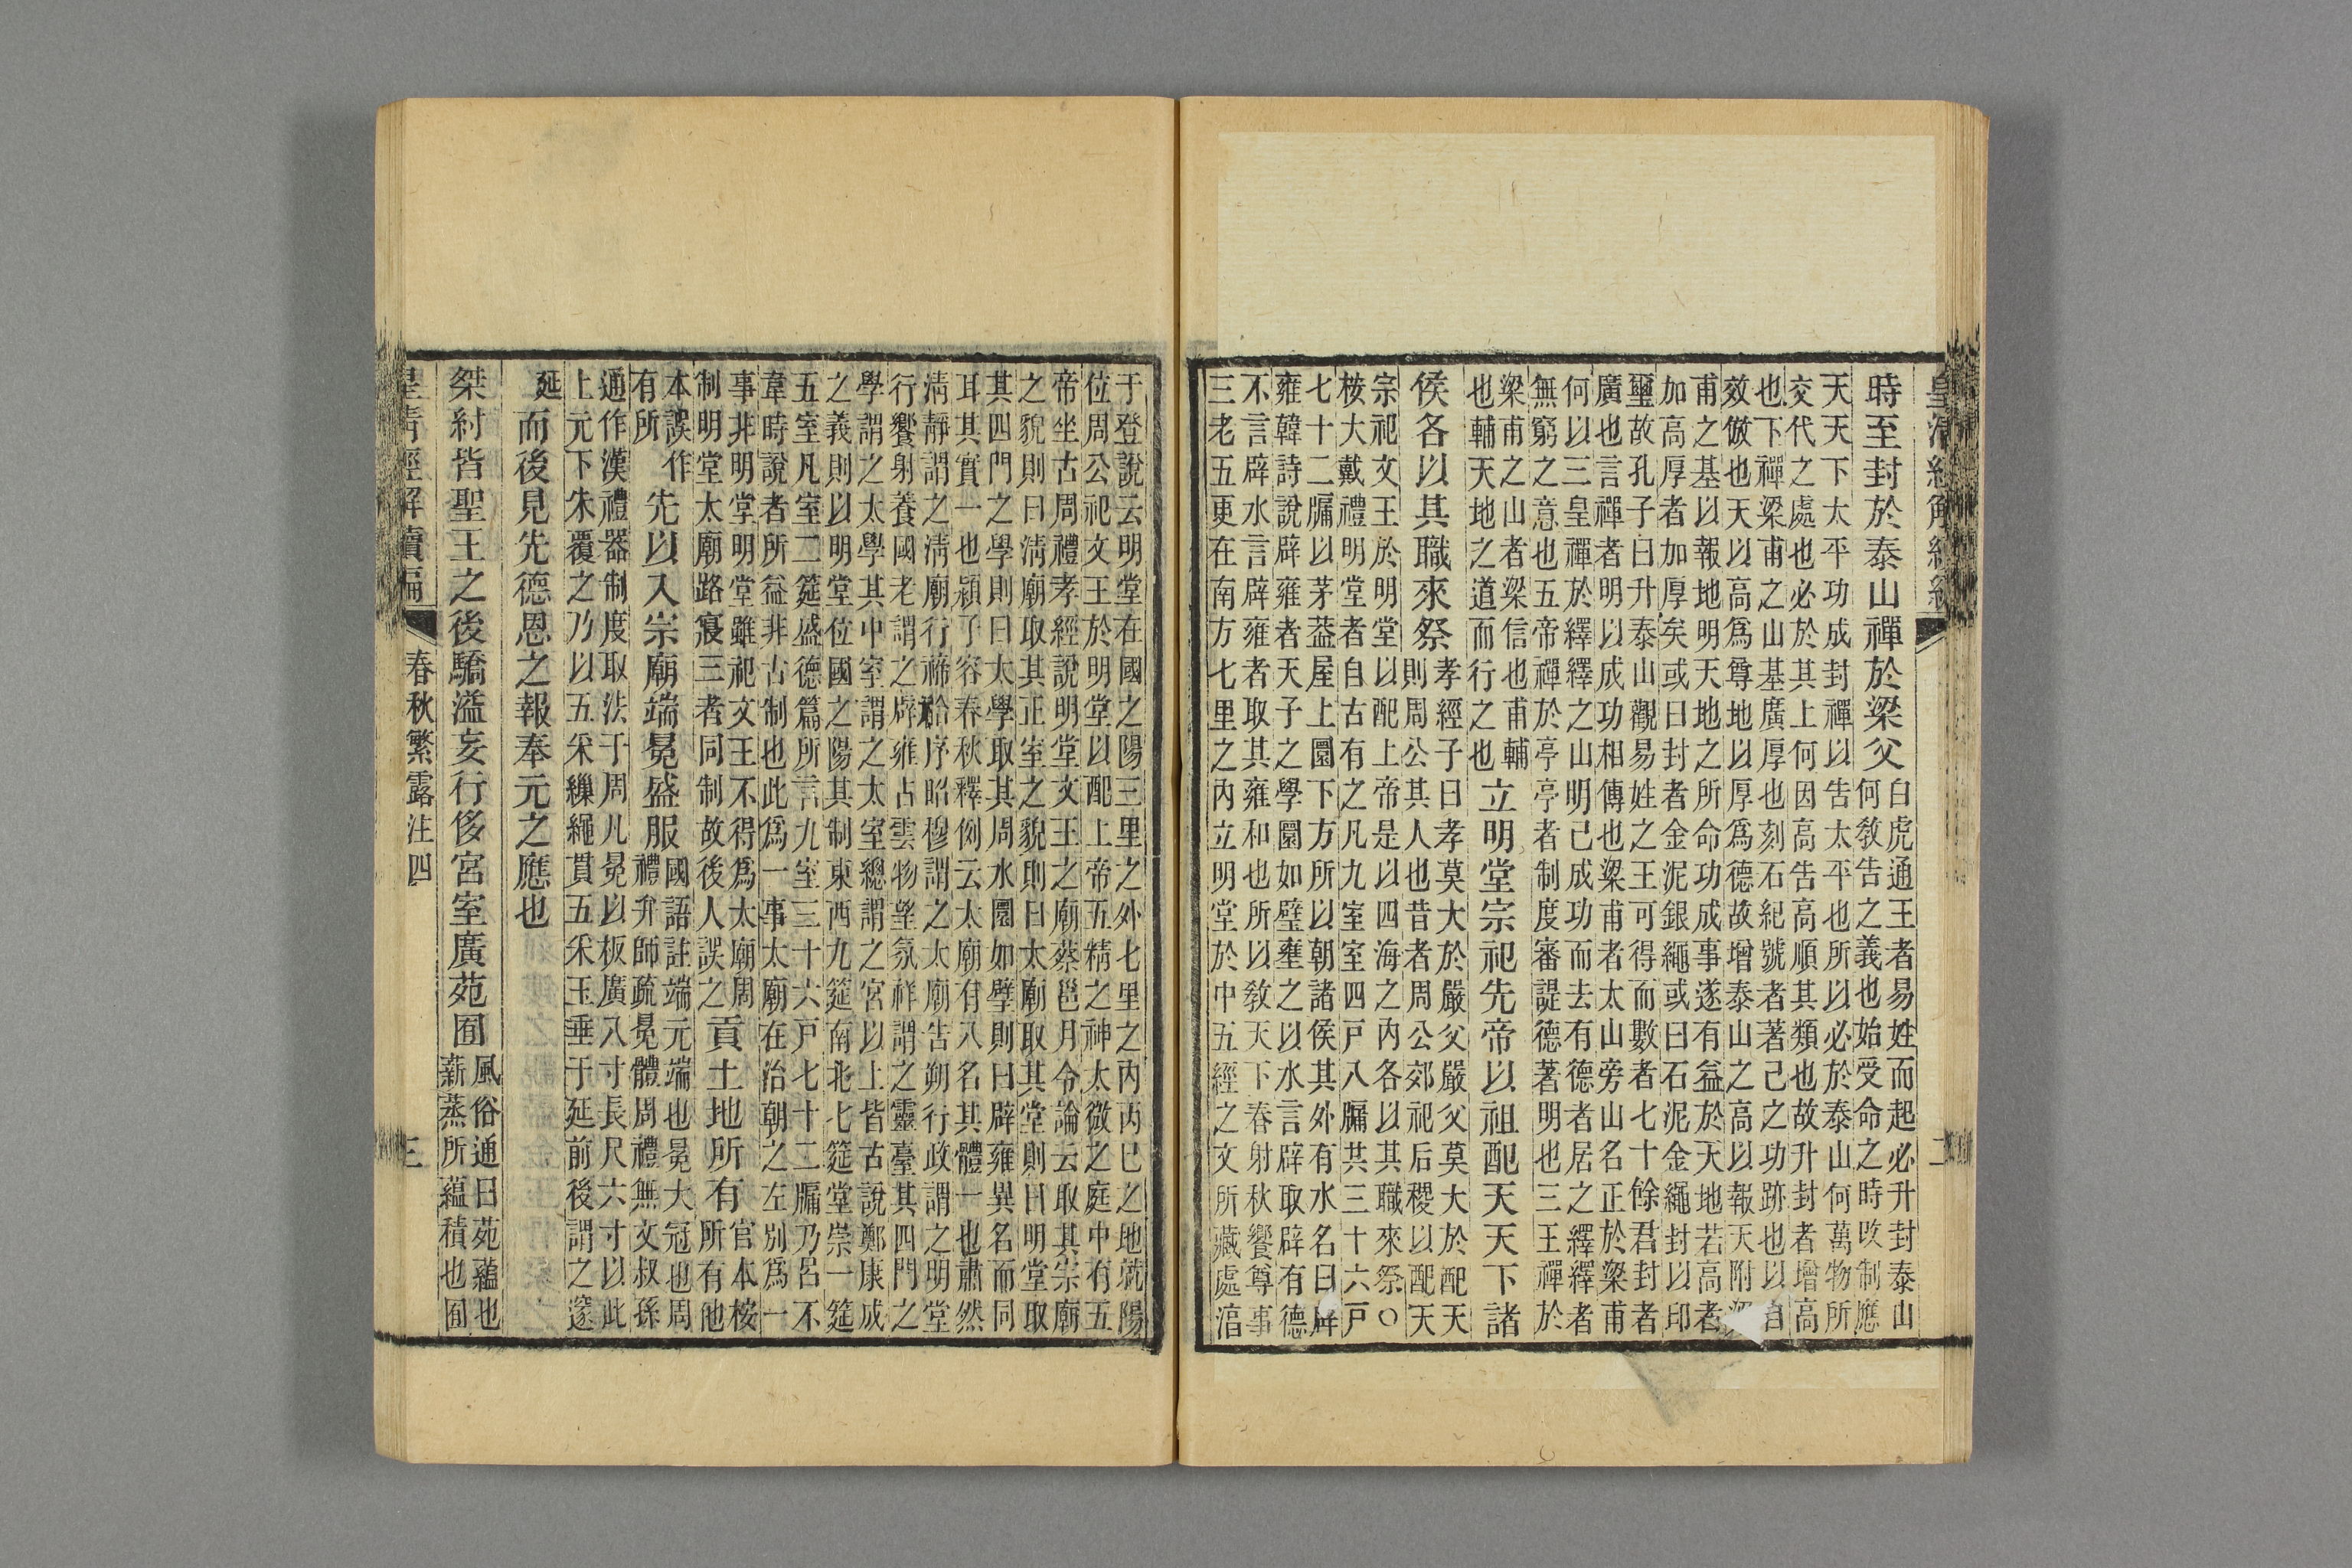 皇清經解續編
二
時至封於泰山禪於梁父
白虎通王者易姓而起必升封泰山
何敎告之義也始受命之時改制應
天天下太平功成封禪以告太平也所以必於泰山何萬物所
交代之處也必於其上何因高告高順其類也故升封者增高
也下禪梁甫之山基廣厚也刻石紀號者著己之功跡也以自
效倣也天以高爲尊地以厚爲德故增泰山之高以報天附梁
甫之基以報地明天地之所命功成事遂有益於天地若高者
加高厚者加厚矣或曰封者金泥銀繩或曰石泥金繩封以印
璽故孔子曰升泰山觀易姓之王可得而數者七十餘君封者
廣也言禪者明以成功相傳也梁甫者太山旁山名正於梁甫
何以三皇禪於繹繹之山明己成功而去有德者居之繹繹者
無窮之意也五帝禪於亭亭者制度審諟德著明也三王禪於
梁甫之山者梁信也甫輔
也輔天地之道而行之也
立明堂宗祀先帝以祖配天天下諸
侯各以其職來祭
孝經子曰孝莫大於嚴父嚴父莫大於配天
則周公其人也昔者周公郊祀后稷以配天
宗祀文王於明堂以配上帝是以四海之內各以其職來祭○
桉大戴禮明堂者自古有之凡九室室四戶八牖共三十六戶
七十二牖以茅葢屋上圜下方所以朝諸侯其外有水名曰辟
雍韓詩說辟雍者天子之學圜如璧壅之以水言辟取辟有德
不言辟水言辟雍者取其雍和也所以敎天下春射秋饗尊事
三老五更在南方七里之內立明堂於中五經之文所藏處湻
于登說云明堂在國之陽三里之外七里之內丙巳之地就陽
位周公祀文王於明堂以配上帝五精之神太微之庭中有五
帝坐古周禮孝經說明堂文王之廟蔡邕月令論云取其宗廟
之貌則曰淸廟取其正室之貌則曰太廟取其堂則曰明堂取
其四門之學則曰太學取其周水圜如璧則曰辟雍異名而同
耳其實一也潁子容春秋釋例云太廟有八名其體一也肅然
淸靜謂之淸廟行禘祫序昭穆謂之太廟告朔行政謂之明堂
行饗射養國老謂之辟雍占雲物望氛祥謂之靈臺其四門之
學謂之太學其中室謂之太室總謂之宮以上皆古說鄭康成
之義則以明堂位國之陽其制東西九筵南北七筵堂崇一筵
五室凡室二筵盛德篇所言九室三十六戶七十二牖乃呂不
韋時說者所益非古制也此爲一事太廟在治朝之左別爲一
事非明堂明堂雖祀文王不得爲太廟周
制明堂太廟路寢三者同制故後人誤之
貢土地所有
官本桉
所有他
本誤作
有所
先以入宗廟端冕盛服
國語註端元端也冕大冠也周
禮弁師疏冕體周禮無文叔孫
通作漢禮器制度取法于周凡冕以板廣八寸長尺六寸以此
上元下朱覆之乃以五采繅繩貫五采玉垂于延前後謂之邃
延
而後見先德恩之報奉元之應也
桀紂皆聖王之後驕溢妄行侈宮室廣苑囿
風俗通曰苑蘊也
薪蒸所蘊積也囿
皇淸經解續編
春秋繁露注四
三